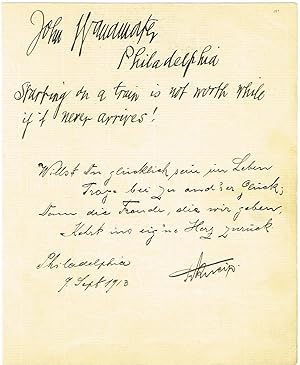 John Wanamaker
Philadelphia
Starting on a train is not worth while
if it never arrives!
Willst Du glücklich sein im Leben
Trage bei zu and'rer Glück;
Denn die Freude, die wir geben,
Kehrt ins eig'ne Herz zurück
Philadelphia
9 Sept 1913